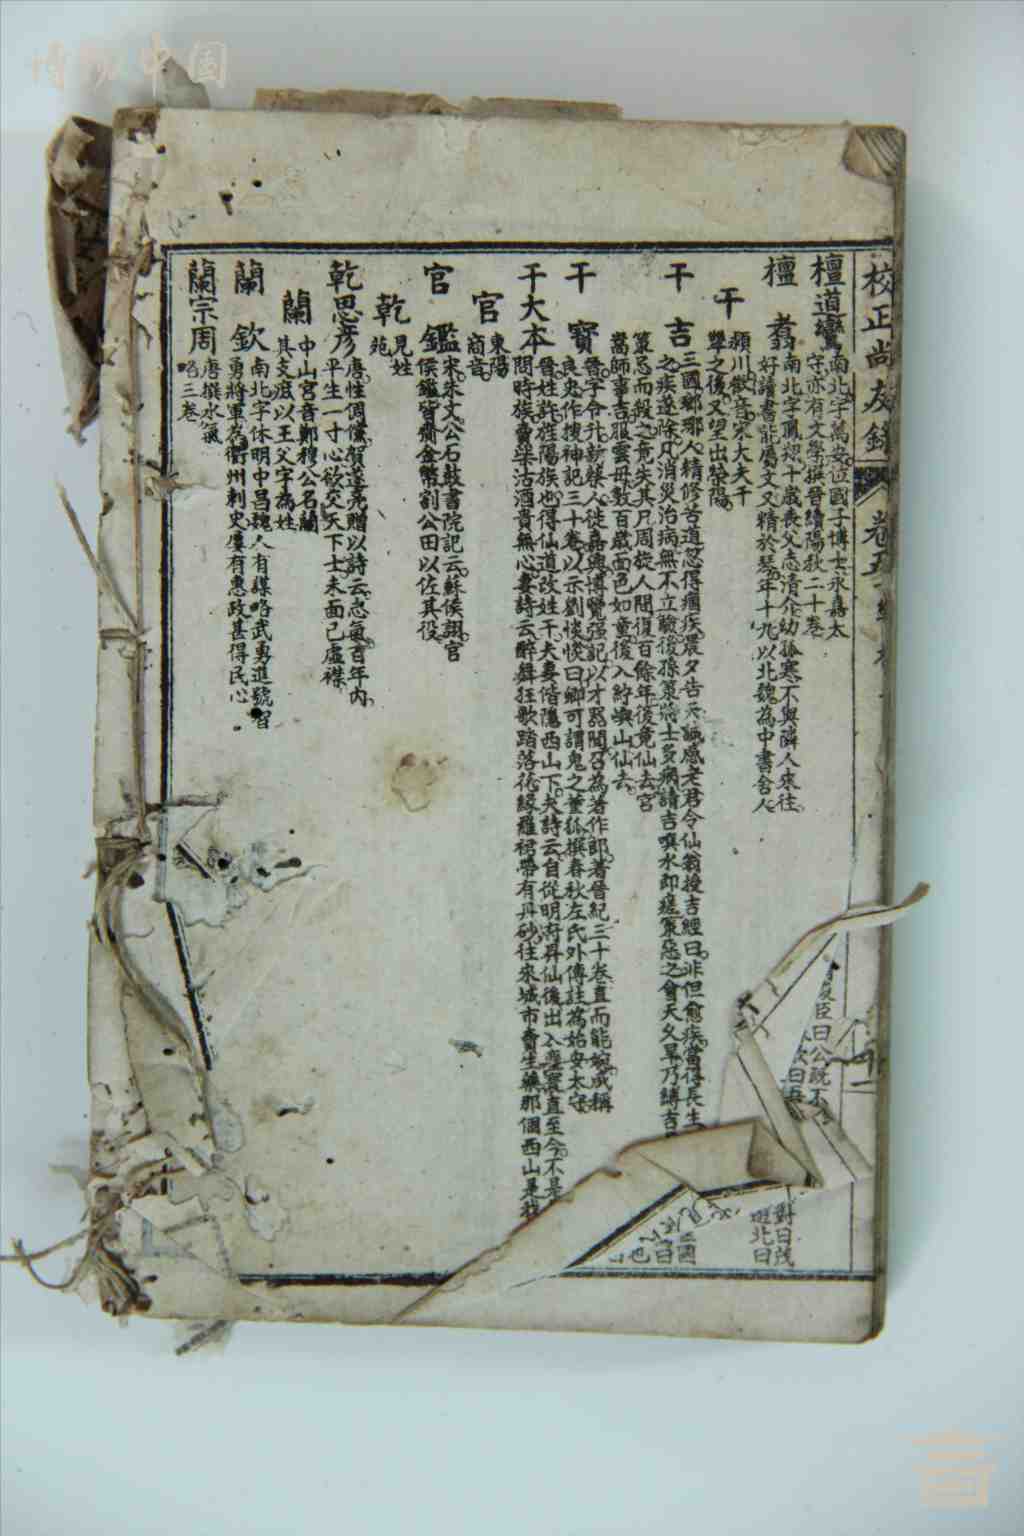 博物中国
校正尚友錄
卷五
檀道鸞
南北字萬安位國子博士永嘉太
守亦有文學撰晉續陽秋二十卷
檀翥
南北字鳳翔十歲喪父志清介幼孤寒不與隣人來往
好讀書能屬文又精於琴年十九以北魏為中書舍人
干
潁川徵音宋大夫干
犨之後又望出滎陽
干吉
三國瑯琊人精修苦道忽得痼疾晨夕告天誠感老君令仙翁授吉經曰非但愈疾當得長生
之疾遂除凡消災治病無不立驗後孫策將士多病請吉噀水即瘥策惡之會天久旱乃縛吉
策忌而殺之竟失其尸周旋人間復百餘年後竟仙去宮
嵩師事吉服雲母數百歲面色如童後入紵嶼山仙去
干寶
晉字令升新蔡人徙嘉興博覽强記以才器聞召為著作郎著晉紀三十卷直而能婉咸稱
良史作搜神記三十卷以示劉惔惔曰卿可謂鬼之董狐撰春秋左氏外傳註為始安太守
干大本
晉姓許旌陽族也得仙道改姓干夫妻偕隱西山下夫詩云自從明府昇仙後出入塵寰直至今不是
問時族賣柴沽酒貴無心妻詩云醉舞狂歌踏落花緣羅裙帶有丹砂往來城市賣生藥那個西山是我
官
東陽
商音
官鑑
宋朱文公石鼓書院記云蘇侯詡官
侯鑑皆齎金幣割公田以佐其役
乾
見姓
苑
乾思彥
唐性倜儻賀遂亮贈以詩云意氣百年內
平生一寸心欲交天下士未面已虛襟
蘭
中山宮音鄭穆公名蘭
其支庶以王父字為姓
蘭欽
南北字休明中昌魏人有謀略武勇進號智
勇將軍為衡州刺史屢有惠政甚得民心
蘭宗周
唐撰水氣
略三卷
臣曰公既不
對曰茂
北曰
國
曰
也